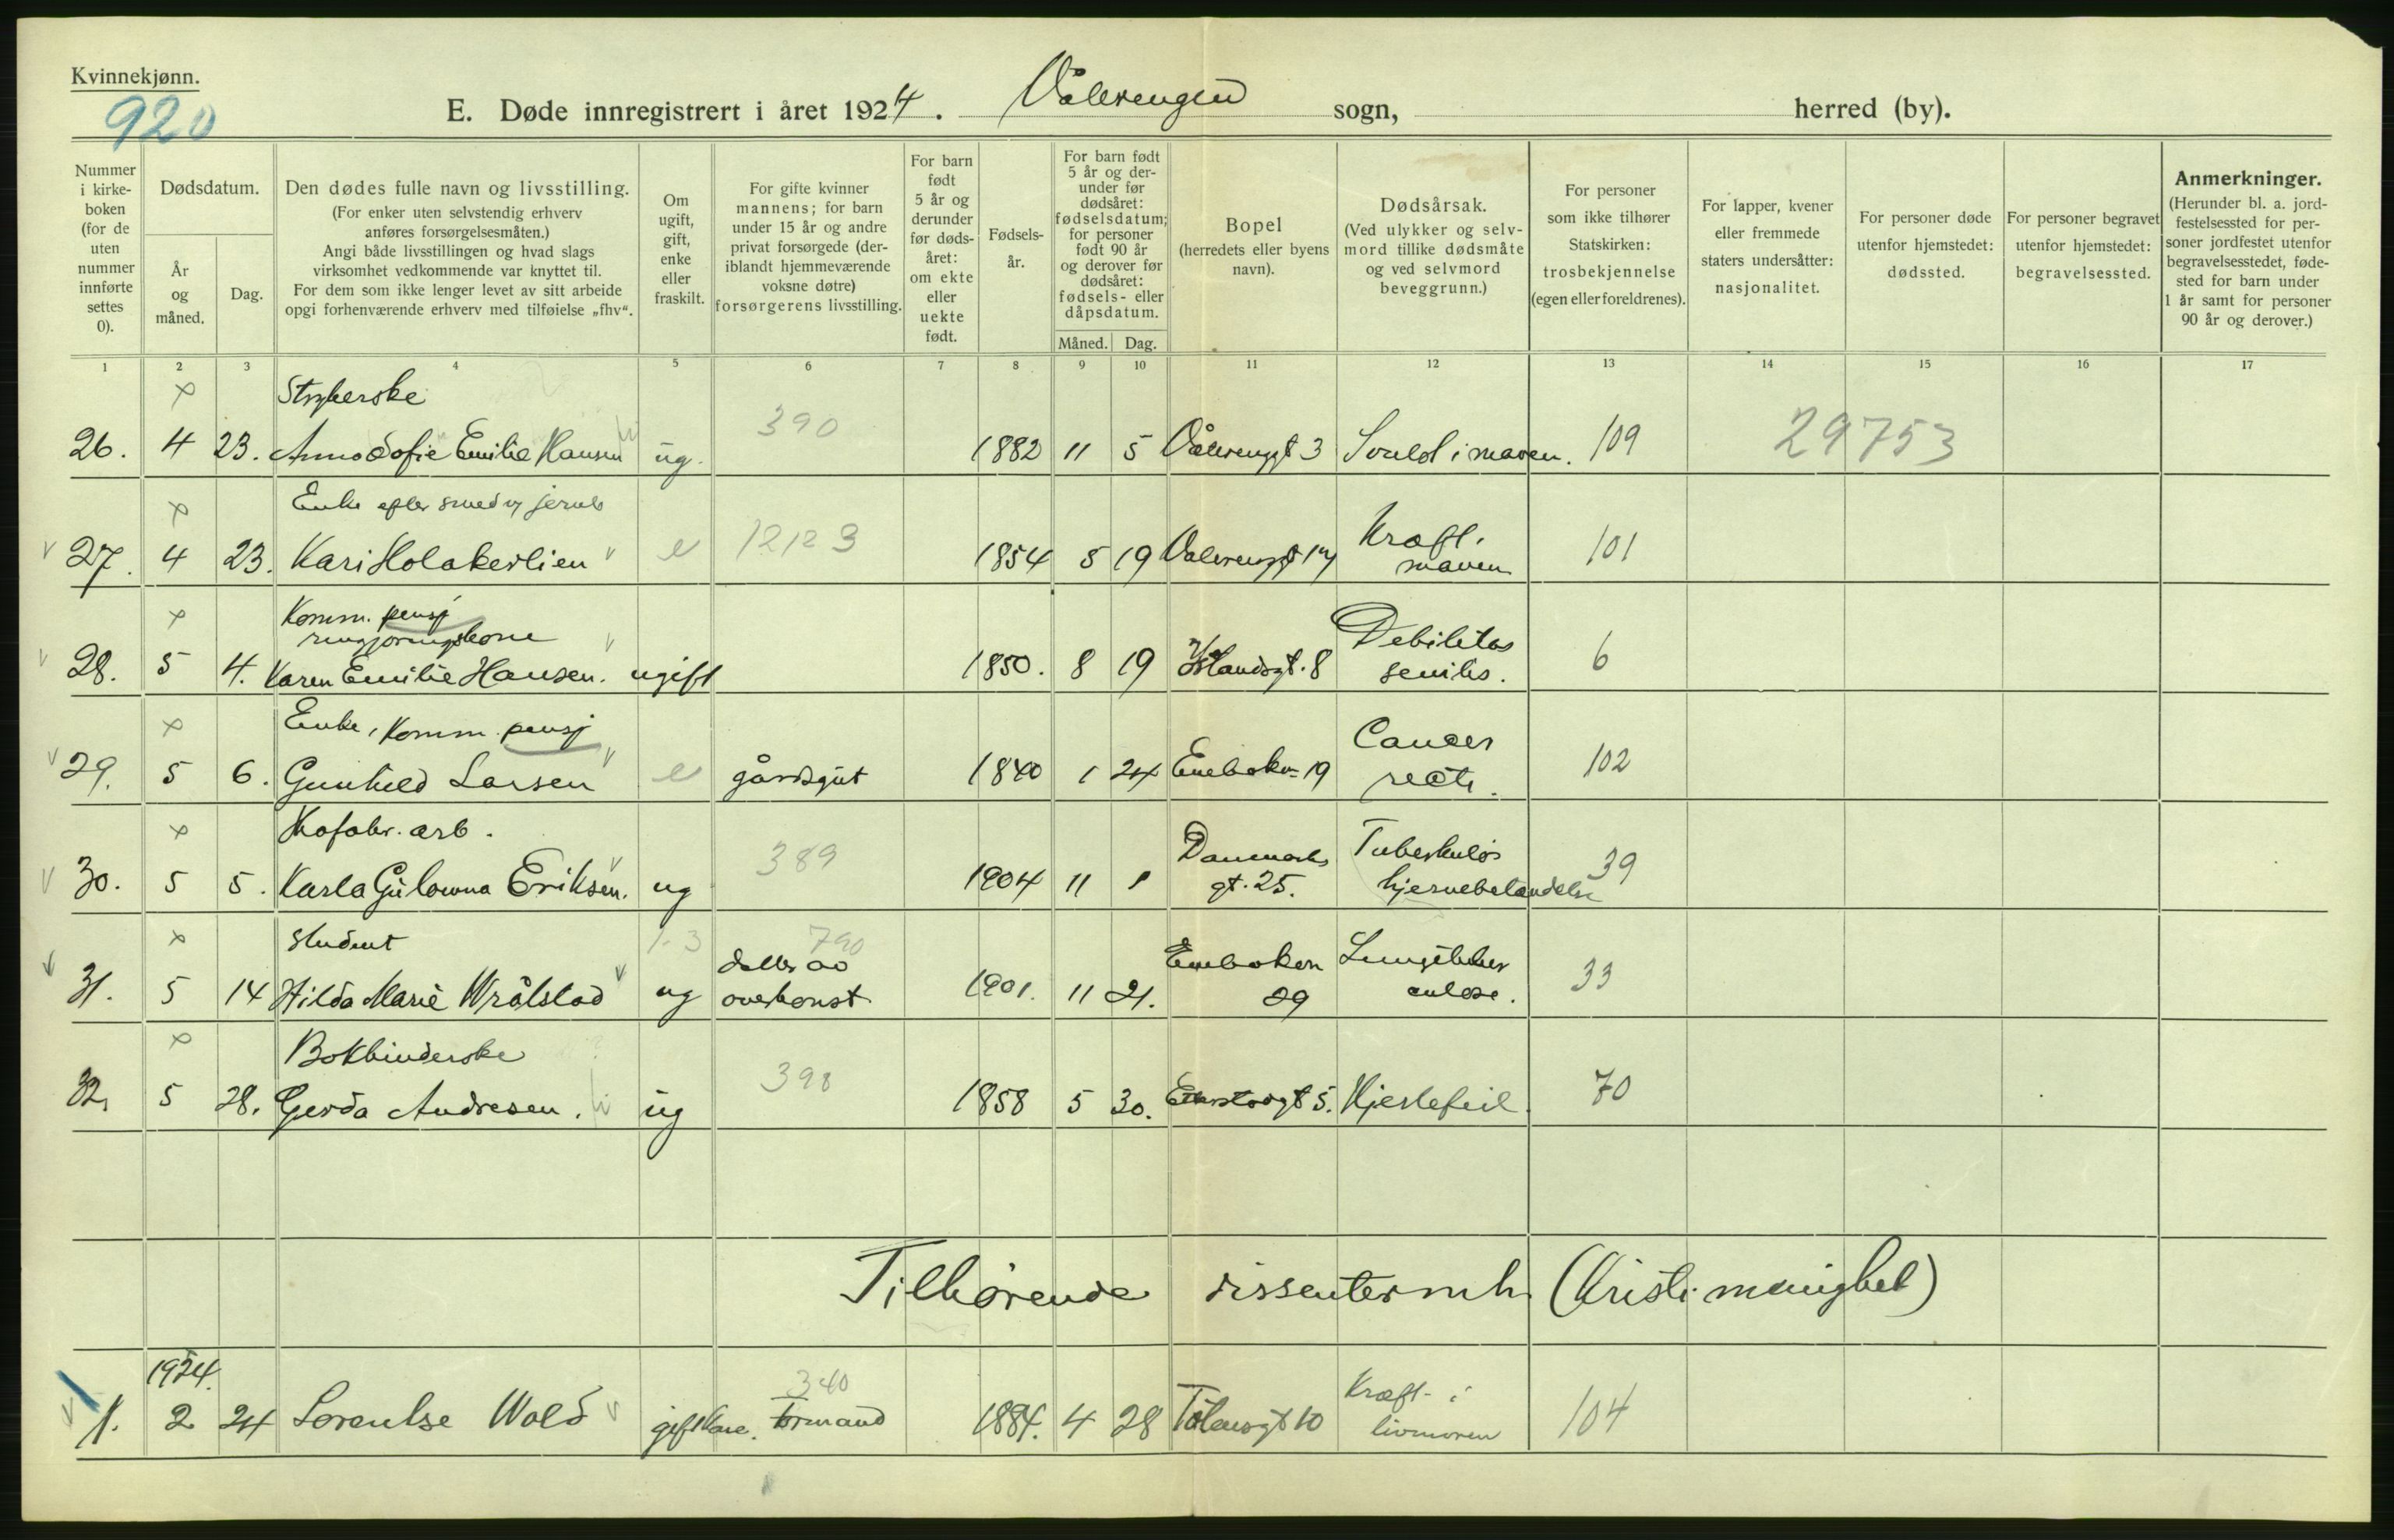 Kvinnekjønn.
920
E. Døde innregistrert i året 1924. Vålerengen sogn, herred (by).
Nummer i kirke- boken (for de uten nummer innførte settes 0).
Dødsdatum.
År og måned.
Dag.
Den dødes fulle navn og livsstilling.
(For enker uten selvstendig erhverv anføres forsørgelsesmåten.)
Angi både livsstillingen og hvad slags virksomhet vedkommende var knyttet til.
For dem som ikke lenger levet av sitt arbeide opgi forhenværende erhverv med tilføielse „fhv“.
Om ugift, gift, enke eller fraskilt.
For gifte kvinner mannens; for barn under 15 år og andre privat forsørgede (der- iblandt hjemmeværende voksne døtre) forsørgerens livsstilling.
For barn født 5 år og derunder før døds- året: om ekte eller uekte født.
Fødsels- år.
For barn født 5 år og der- under før dødsåret: fødselsdatum; for personer født 90 år og derover før dødsåret: fødsels- eller dåpsdatum.
Måned. Dag.
Bopel (herredets eller byens navn).
Dødsårsak.
(Ved ulykker og selv- mord tillike dødsmåte og ved selvmord beveggrunn.)
For personer som ikke tilhører Statskirken: trosbekjennelse (egen eller foreldrenes).
For lapper, kvener eller fremmede staters undersåtter: nasjonalitet.
For personer døde utenfor hjemstedet: dødssted.
For personer begravet utenfor hjemstedet: begravelsessted.
Anmerkninger.
(Herunder bl. a. jord- festelsessted for per- soner jordfestet utenfor begravelsesstedet, føde- sted for barn under 1 år samt for personer 90 år og derover.)
1 2 3 4 5 6 7 8 9 10 11 12 13 14 15 16 17
Strykerske
390
26. 4 23. Anna Sofie Emilie Hansen ug. 1882 11 5 Vålerenggt 3 Svulst i maven. 109 29753
Enke efter smed
27. 4 23. Kari Holakerlien e 12123 1854 5 19 Vålerenggt 17 Kræft i maven 101
Komm. pensj
rengjøringskone
28. 5 4. Karen Emilie Hansen. ugift 1850. 8 19 Islandsgt. 8 Debilitas senilis. 6
Enke, Komm. pensj
29. 5 6. Gunhild Larsen e gårdsgut 1840 1 24 Enebakv 19 Cancer recti. 102
arb.
30. 5 5. Karla Gulowna Eriksen. ug 389 1904 11 1 Danmarks gt. 25. Tuberkuløs hjernebetændelse 39
Student 1-3 790
31. 5 14 Hilda Marie Wrålstad ug datter av overkonst 1901. 11 21. Enebakvn 29 Lungetuber culose. 33
Bokbinderske
32. 5 28. Gerda Andresen. ug 398 1858 5 30. 5. Hjertefeil. 70
Tilhørende dissentermh (Kristi menighet)
1924.
1. 2 24 Lorentse Wold gift 340 formand 1884. 4 28 Tøiengt 10 Kræft i livmoren 104